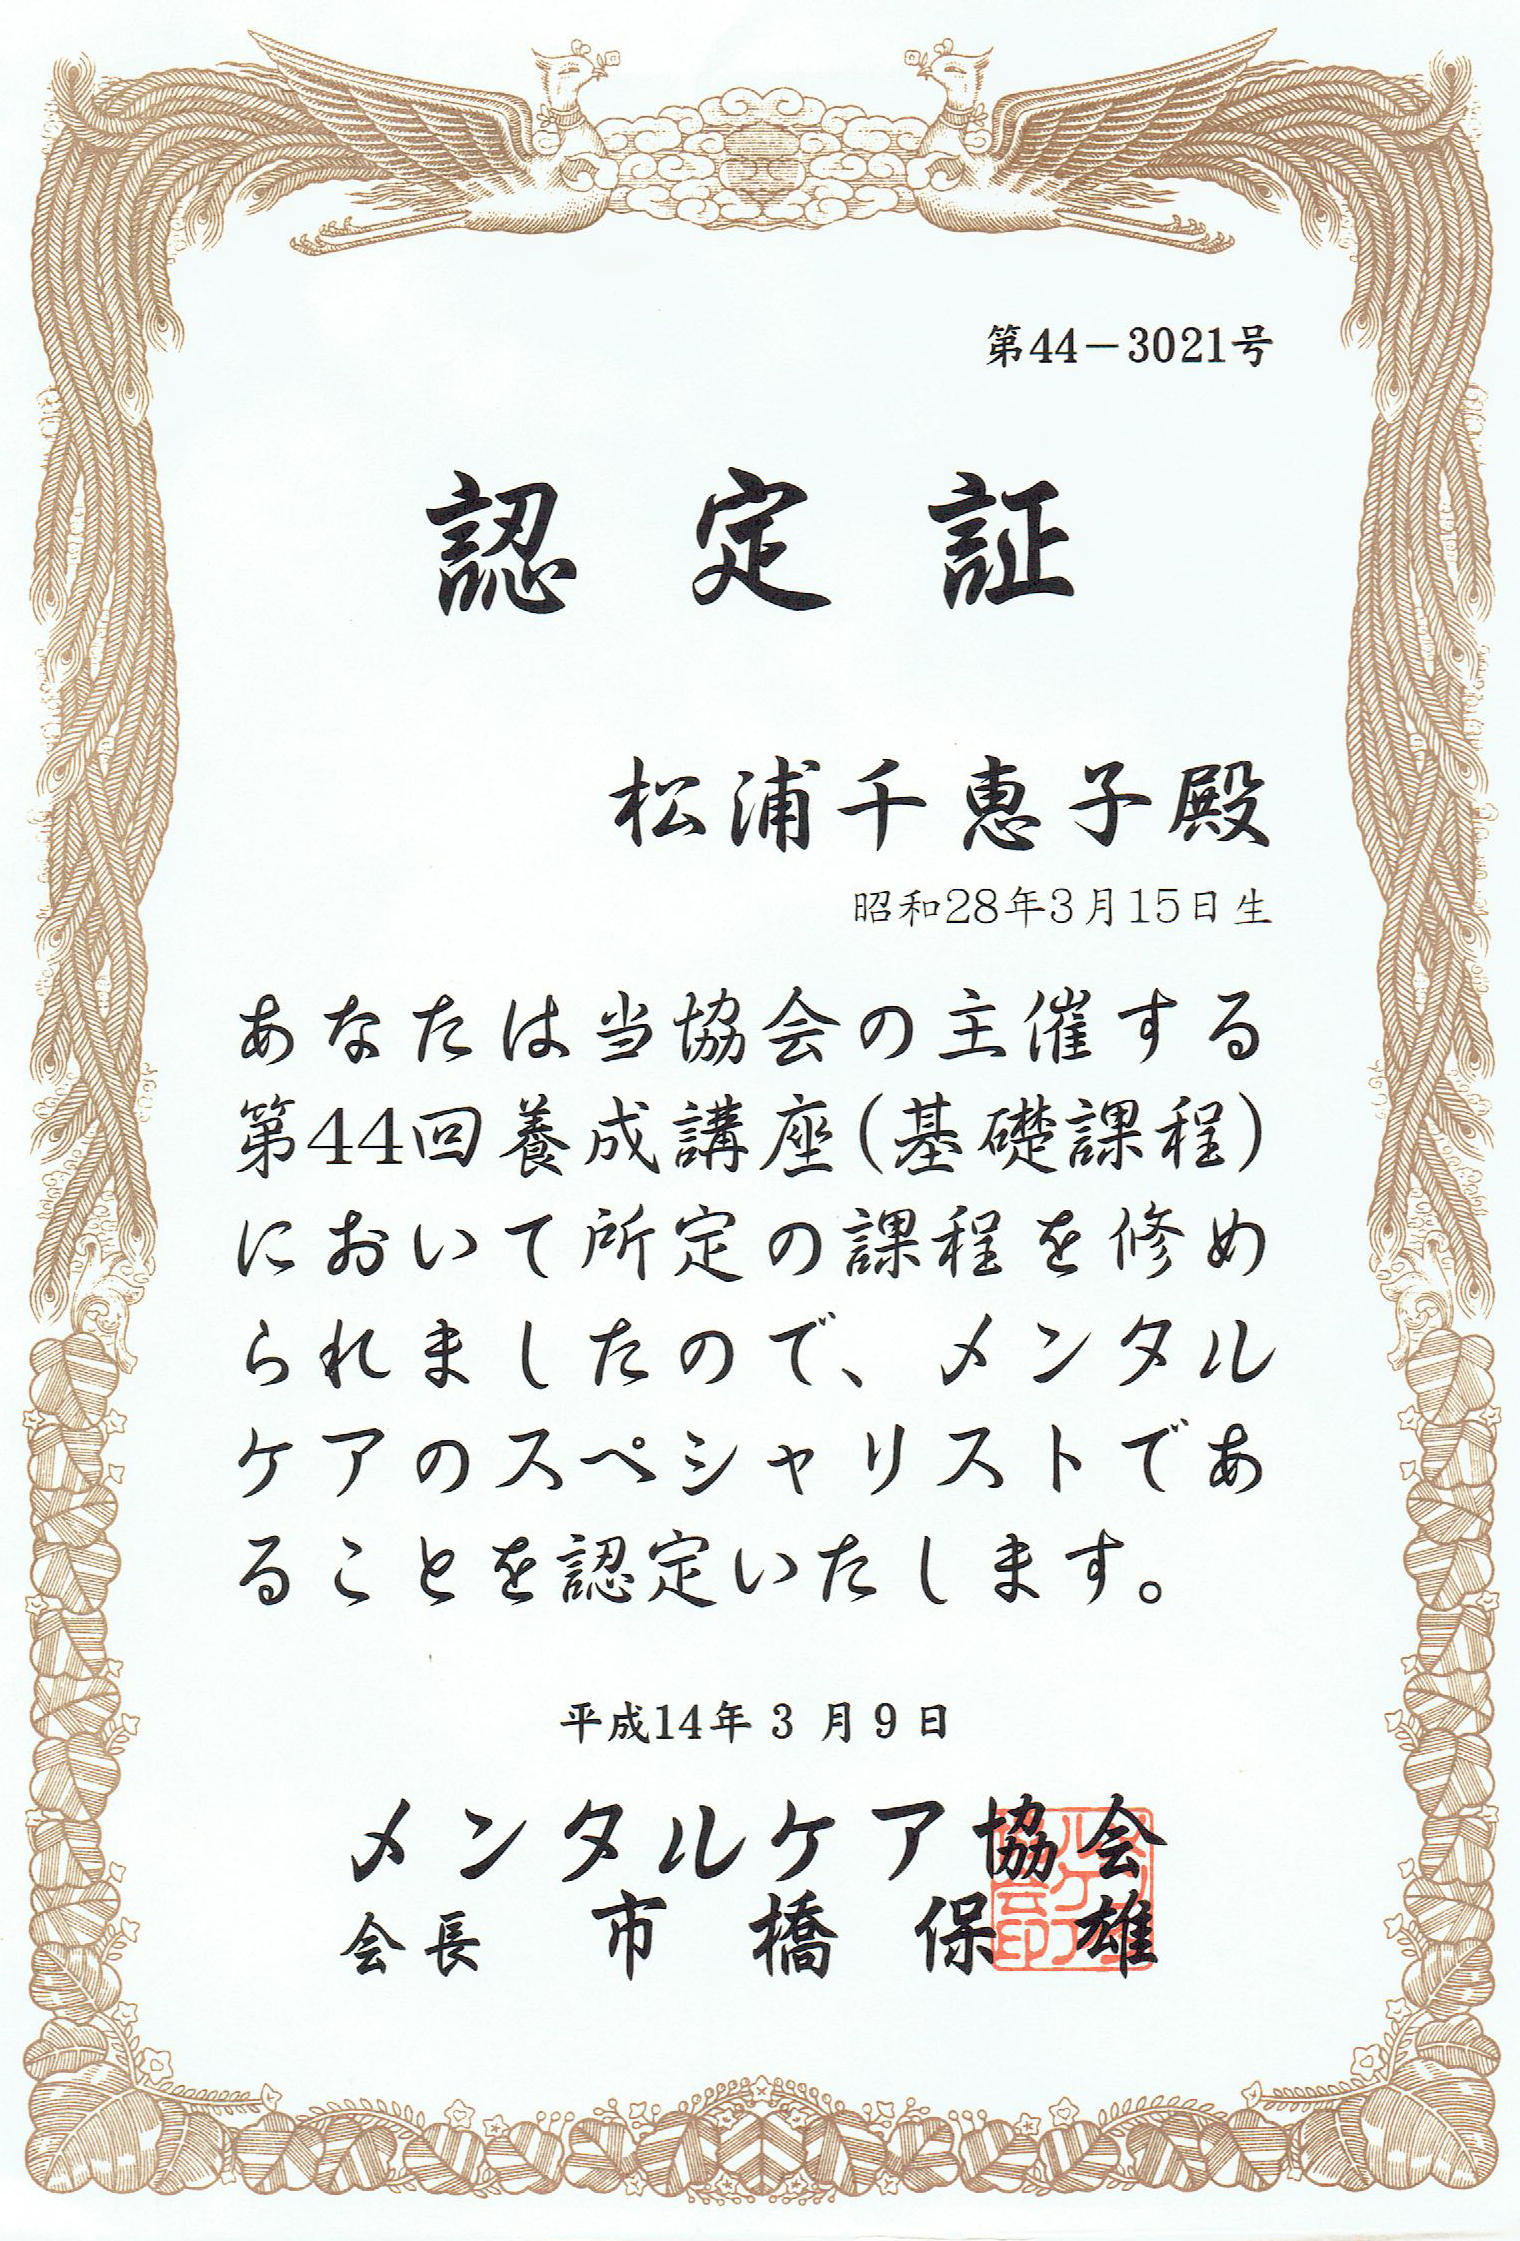 第44－3021号
認定証
松浦千恵子殿
昭和28年3月15日生
あなたは当協会の主催する
第44回養成講座(基礎課程)
において所定の課程を修め
られましたので、メンタル
ケアのスペシャリストであ
ることを認定いたします。
平成14年3月9日
メンタルケア協会
会長 市橋保雄